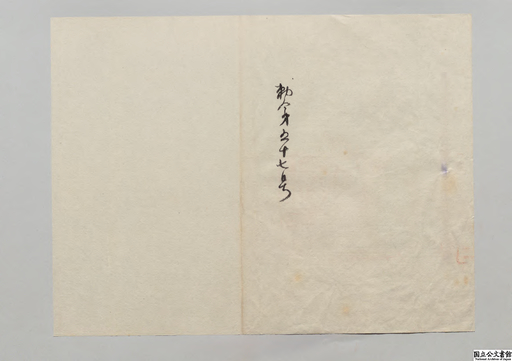 勅令第五十七号
国立公文書館
National Archives of Japan